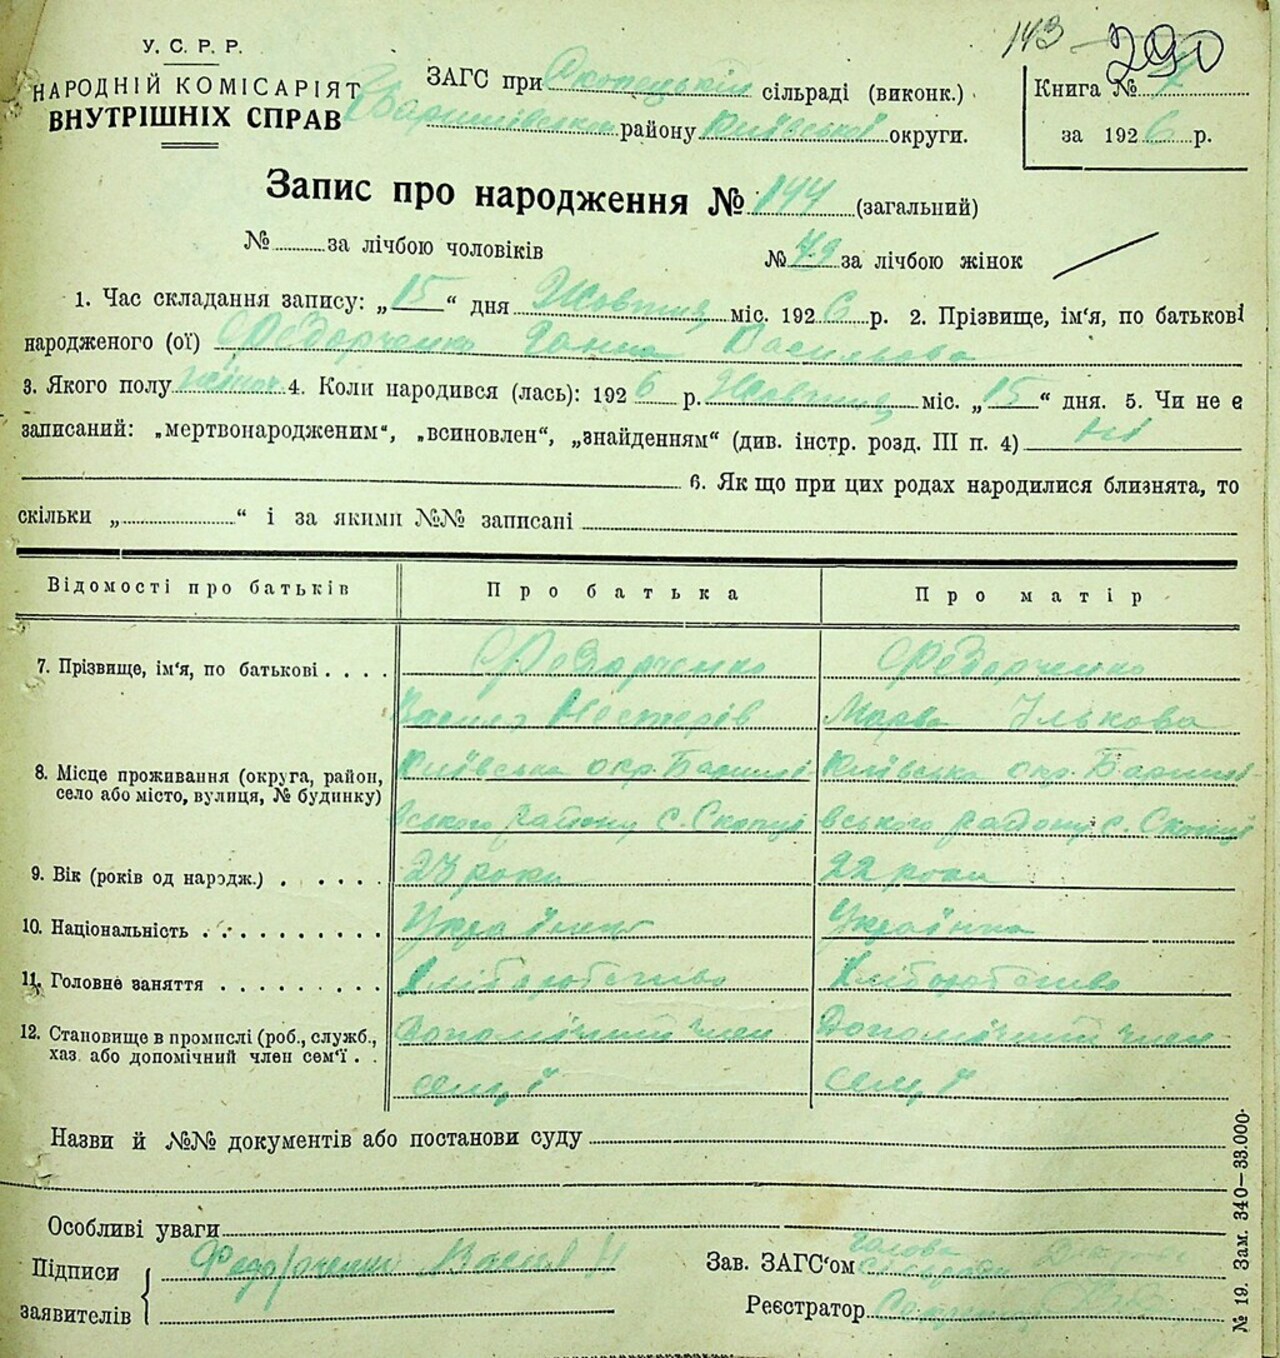 143 290
У. С. Р. Р.
НАРОДНІЙ КОМІСАРІЯТ
ВНУТРІШНІХ СПРАВ
ЗАГС при Скопецькій сільраді (виконк.)
Баришівського району Київської округи.
Книга №
за 1926 р.
Запис про народження № 144 (загальний)
№ за лічбою чоловіків № 79 за лічбою жінок
1. Час складання запису: „15“ дня Жовтня міс. 1926 р. 2. Прізвище, ім‘я, по батькові
народженого (ої) Федорченко Ганна Васильова
3. Якого полу жіноч 4. Коли народився (лась): 1926 р. Жовтня міс. „15“ дня. 5. Чи не є
записаний: „мертвонародженим“, „всиновлен“, „знайденням“ (див. інстр. розд. III п. 4) Ні
6. Як що при цих родах народилися близнята, то
скільки „ “ і за якими №№ записані
Відомості про батьків Про батька Про матір
7. Прізвище, ім‘я, по батькові . . . . Федорченко Федорченко
Василь Нестерів Марва Ількова
8. Місце проживання (округа, район, Київська окр. Бариші Київська окр. Бариші
село або місто, вулиця, № будинку)
вського району с. Скопці вського району с. Скопці
9. Вік (років од народж.) . . . . . 23 роки 22 роки
10. Національність . . . . . . . . . . Українць Українка
11. Головне заняття . . . . . . . . . Хліборобство Хліборобство
12. Становище в промислі (роб., служб., Допомічний член Допомічний член
хаз. або допомічний член сем‘ї . .
семʼї семʼї
Назви й №№ документів або постанови суду
Особливі уваги
Підписи Федорченко Василь Н
заявителів
Зав. ЗАГС‘ом Голова
сільради
Реєстратор
№ 19. Зам. 340—33.000.